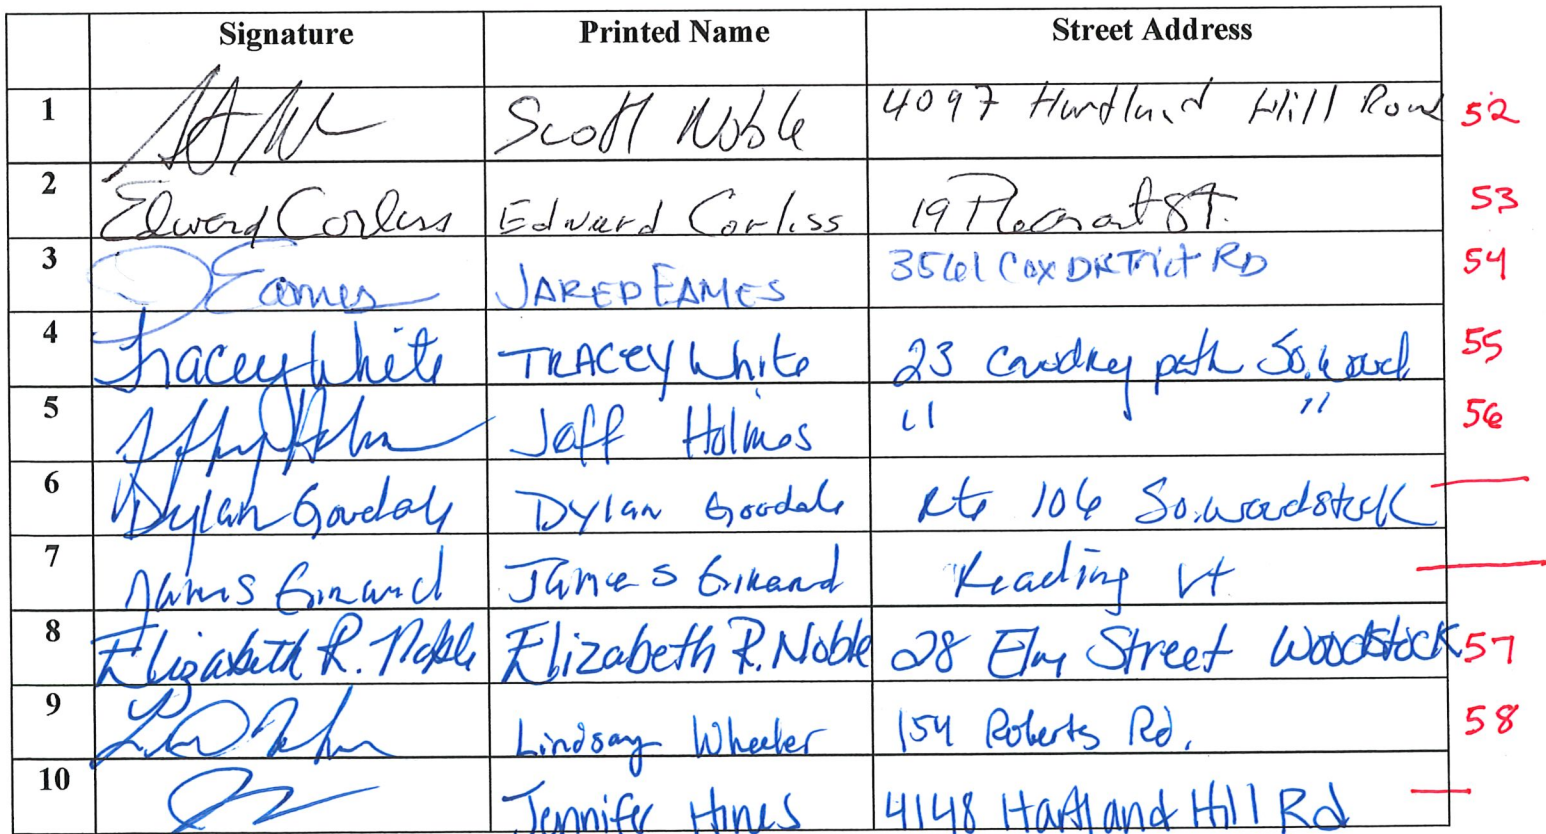 Signature Printed Name Street Address
1 Scott Noble 4097 Hartland Hill Road 52
2 Edward Corliss Edward Corliss 19 Pleasant St. 53
3 J Eames JARED EAMES 3561 Cox DISTRICT RD 54
4 Tracey White TRACEY White 23 path So. Wood 55
5 Jeff Holmes " " 56
6 Dylan Goodale Dylan Goodale Rte 106 So. Woodstock —
7 James Girard James Girard Reading Vt —
8 Elizabeth R. Noble Elizabeth R. Noble 28 Elm Street Woodstock 57
9 Lindsay Wheeler 154 Roberts Rd. 58
10 Jennifer Hines 4148 Hartland Hill Rd —